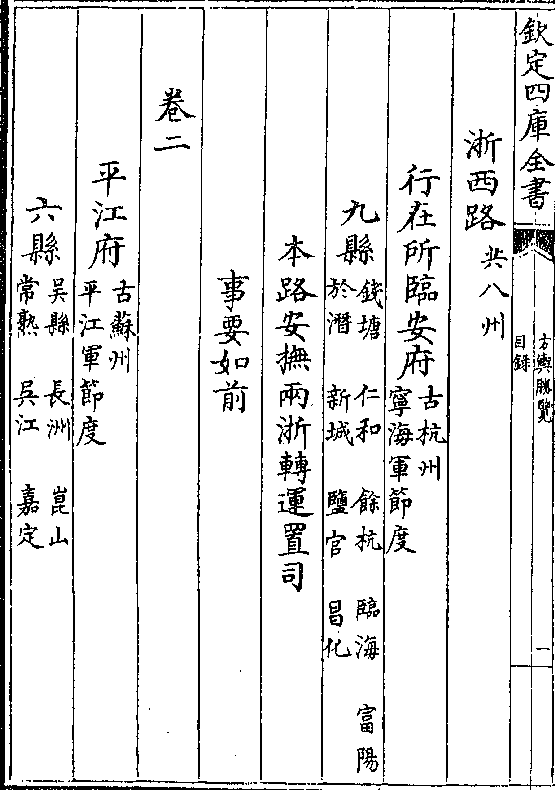 欽定四庫全書
方輿勝覽
目錄
一
浙西路 共八州
行在所臨安府 古杭州
寧海軍節度
九縣 錢塘 仁和 餘杭 臨海 富陽
於潛 新城 鹽官 昌化
本路安撫兩浙轉運置司
事要如前
卷二
平江府 古蘇州
平江軍節度
六縣 吳縣 長洲 崑山
常熟 吳江 嘉定